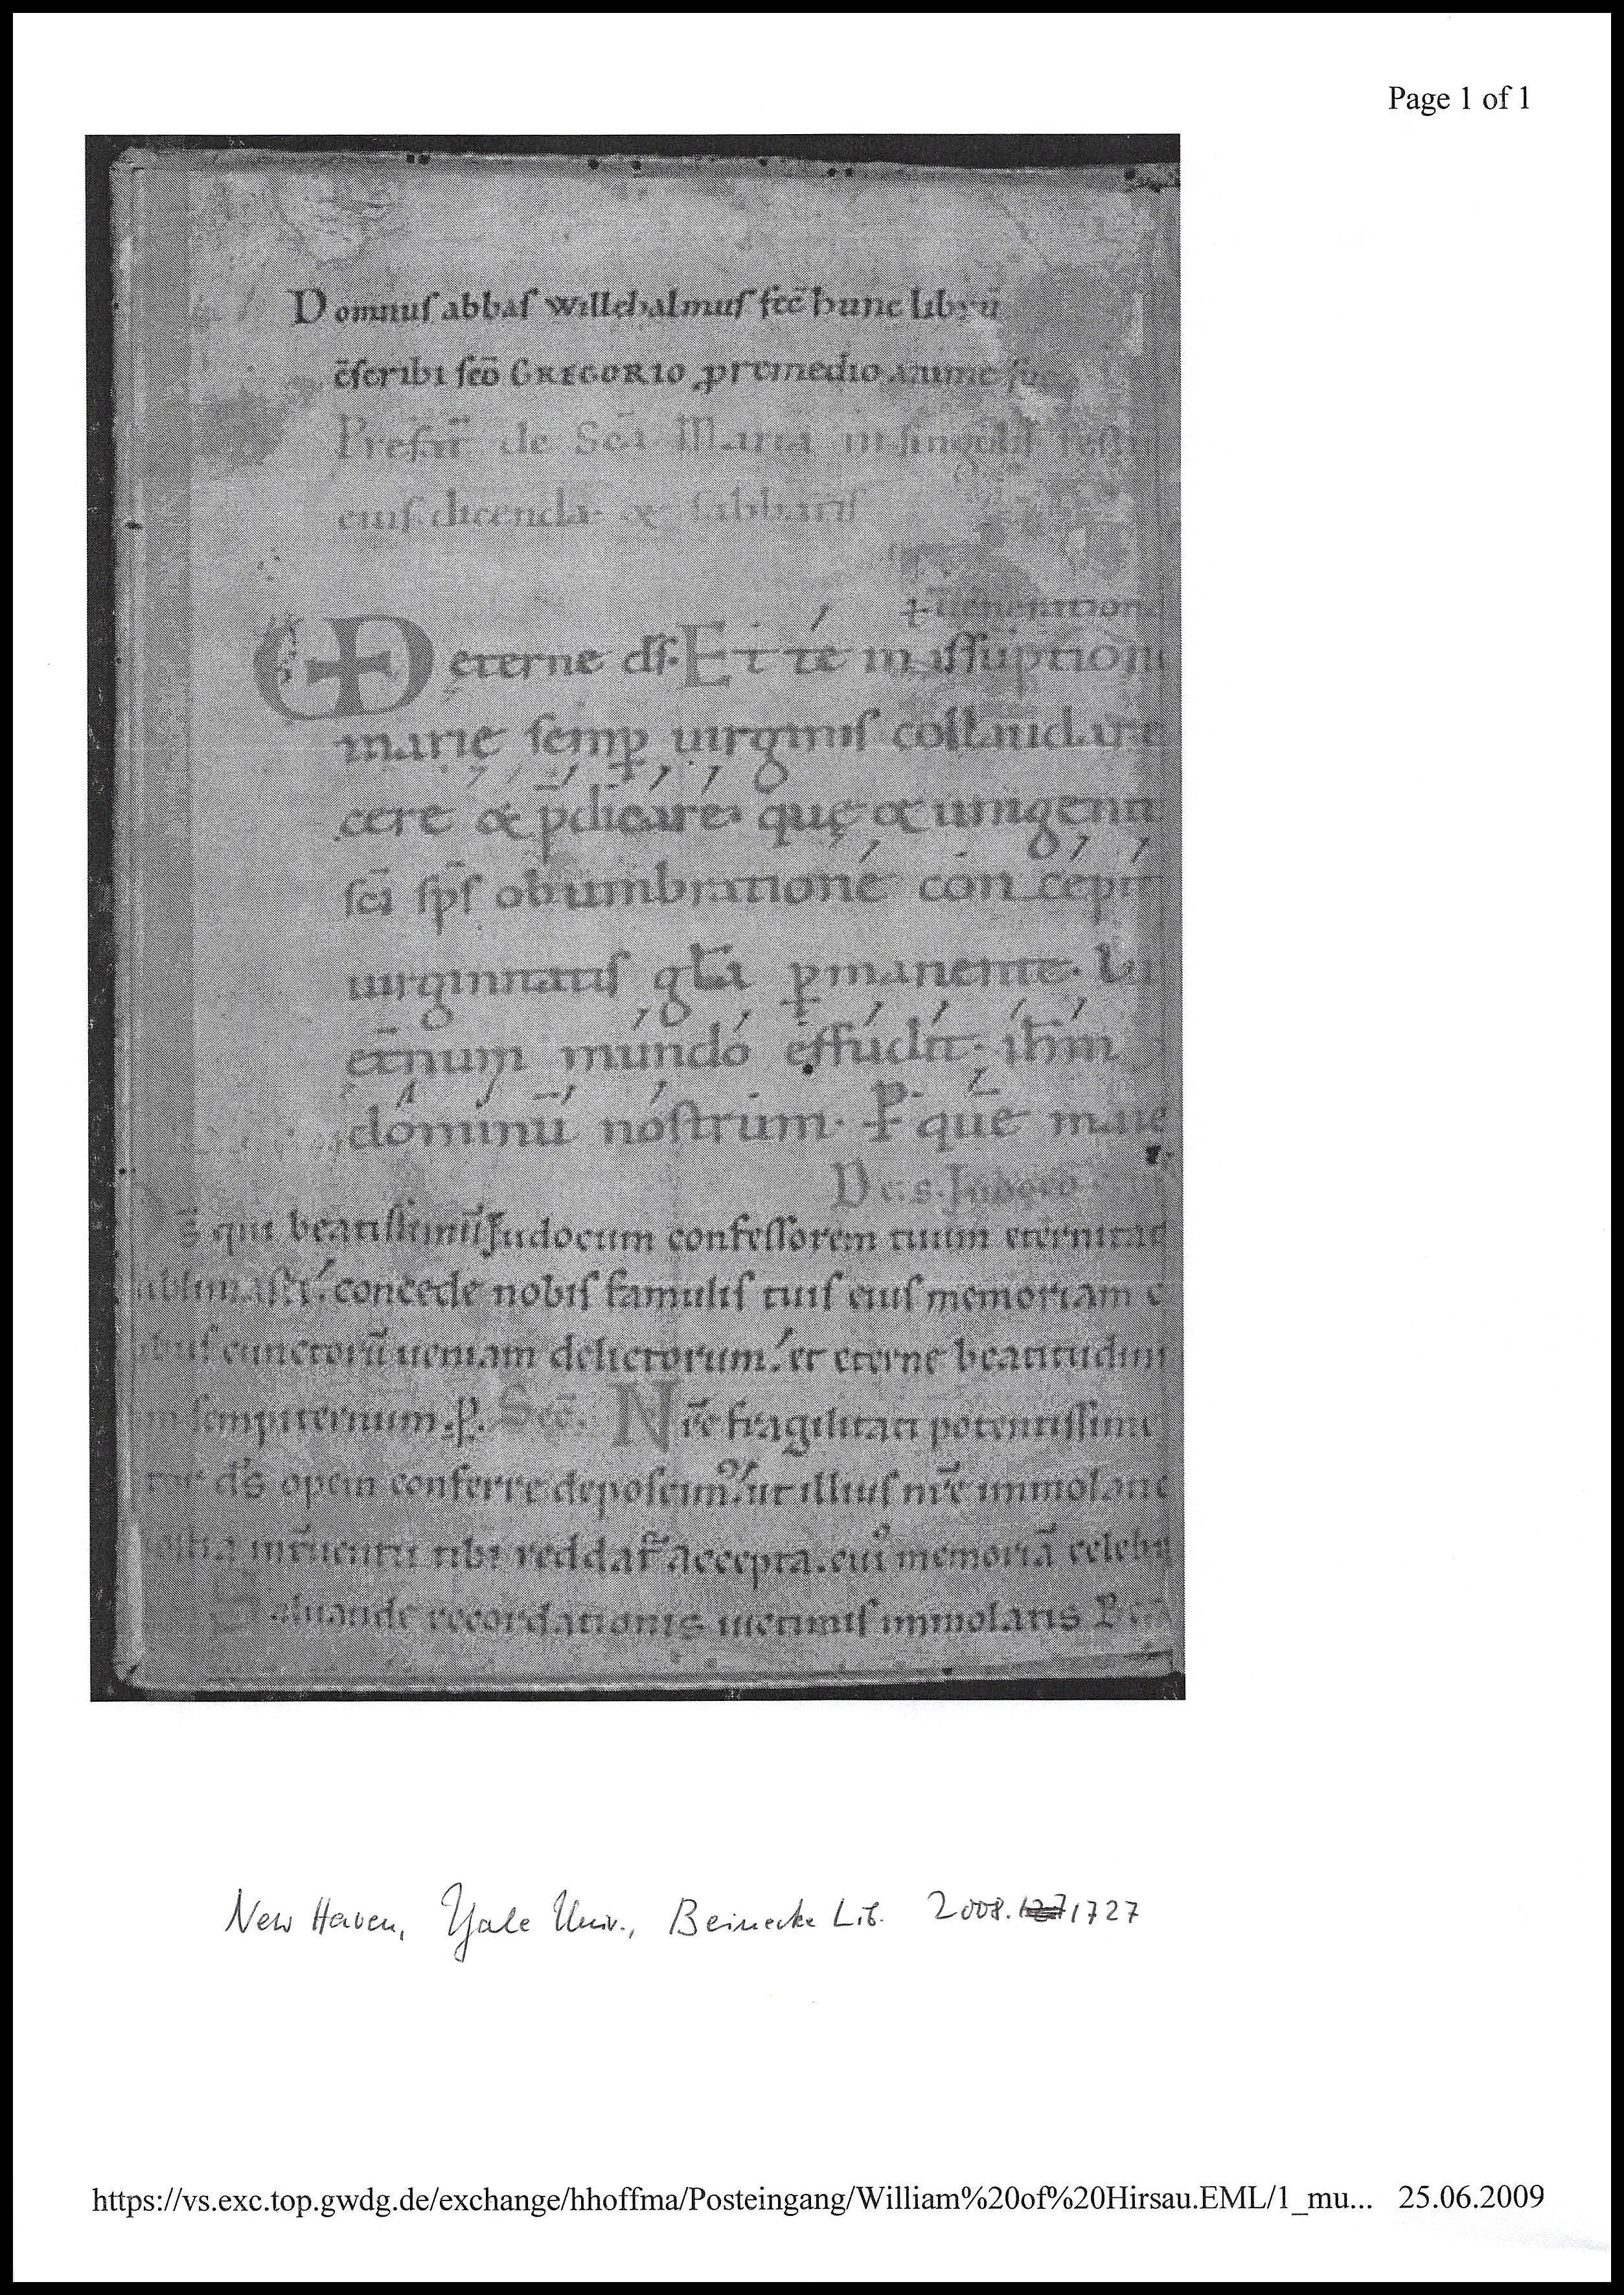 Page 1 of 1
Domnus abbas willehalmus fec̄ hunc librū
c̄scribi sc̄o GREGORIO ꝓremedio anime suę
Prefat̄ de Sc̄a Maria in singulis festis
eius dicenda. & sabbatis
eterne ds̄. Et te in assūptione
marie semꝑ uirginis collaudare
cere & p̄dicare. quę & unigenitū
sc̄i sp̄s obumbratione concepit
uirginitatis gl̄a ꝑmanente. lu
et̄num mundo effudit. ih̄m
dominū nostrum. P. quē maie
De. s. Iudoco
s̄ qui beatissimū Iudocum confessorem tuum eternitat
ublimasti. concede nobis famulis tuis eius memoriam c
cunctorū ueniam delictorum. et eterne beatitudini
in sempiternum. p. Sec̄. Nr̄e fragilitati potentissime
ds̄ opem conferre deposcim᷒. ut illius nr̄e immolant
tibi reddat̄ accepta. cui᷒ memoriā celebr
recordationis uictimis immolatis
New Haven, Yale Univ., Beinecke Lib. 2008.1727
https://vs.exc.top.gwdg.de/exchange/hhoffma/Posteingang/William%20of%20Hirsau.EML/1_mu... 25.06.2009